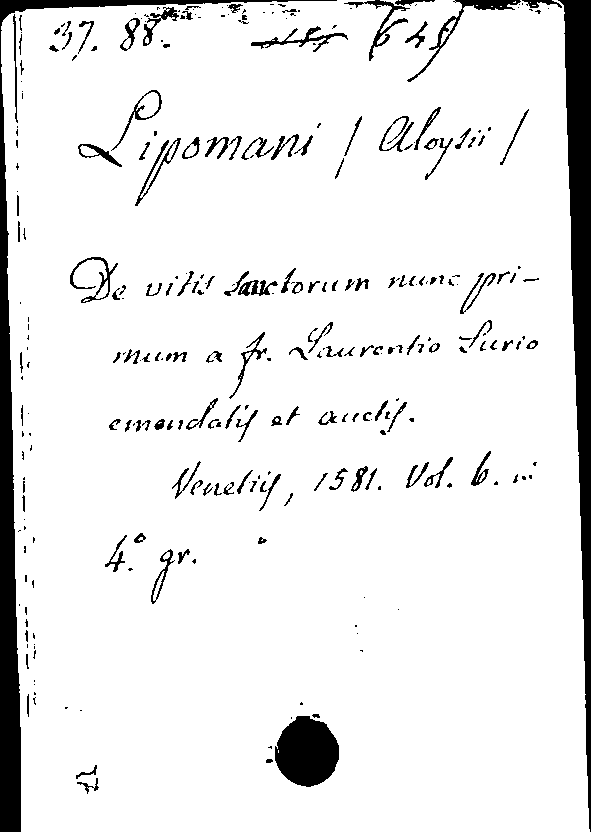 37. 88. (649)
Lipomani / Aloysii /
De vitis sanctorum nunc pri-
mum a fr. Laurentio Surio
emendatis et auctis.
Venetiis, 1581. Vol. 6. in
4.º gr.